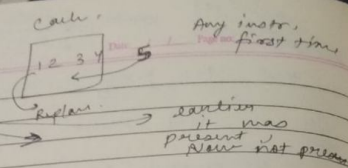 Cach.
Any instr.
first time
Date
1 2 3 4
5
Replace.
earlier
it was
present,
Now not present